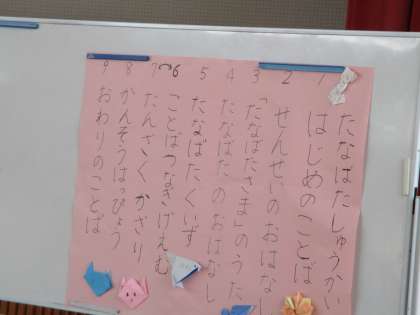 たなばたしゅうかい
1 はじめのことば
2 せんせいのおはなし
3 「たなばたさま」のうた
4 たなばたのおはなし
5 たなばたくいず
6 ことばつなぎげえむ
7 たんざくかざり
8 かんそうはっぴょう
9 おわりのことば